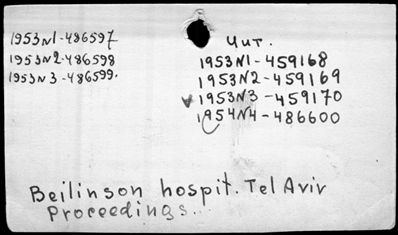 1953N1-486597
1953N2-486598
1953N3-486599.
Чит.
1953N1-459168
1953N2-459169
1953N3-459170
1954N4-486600
Beilinson hospit. Tel Aviv
Proceedings...